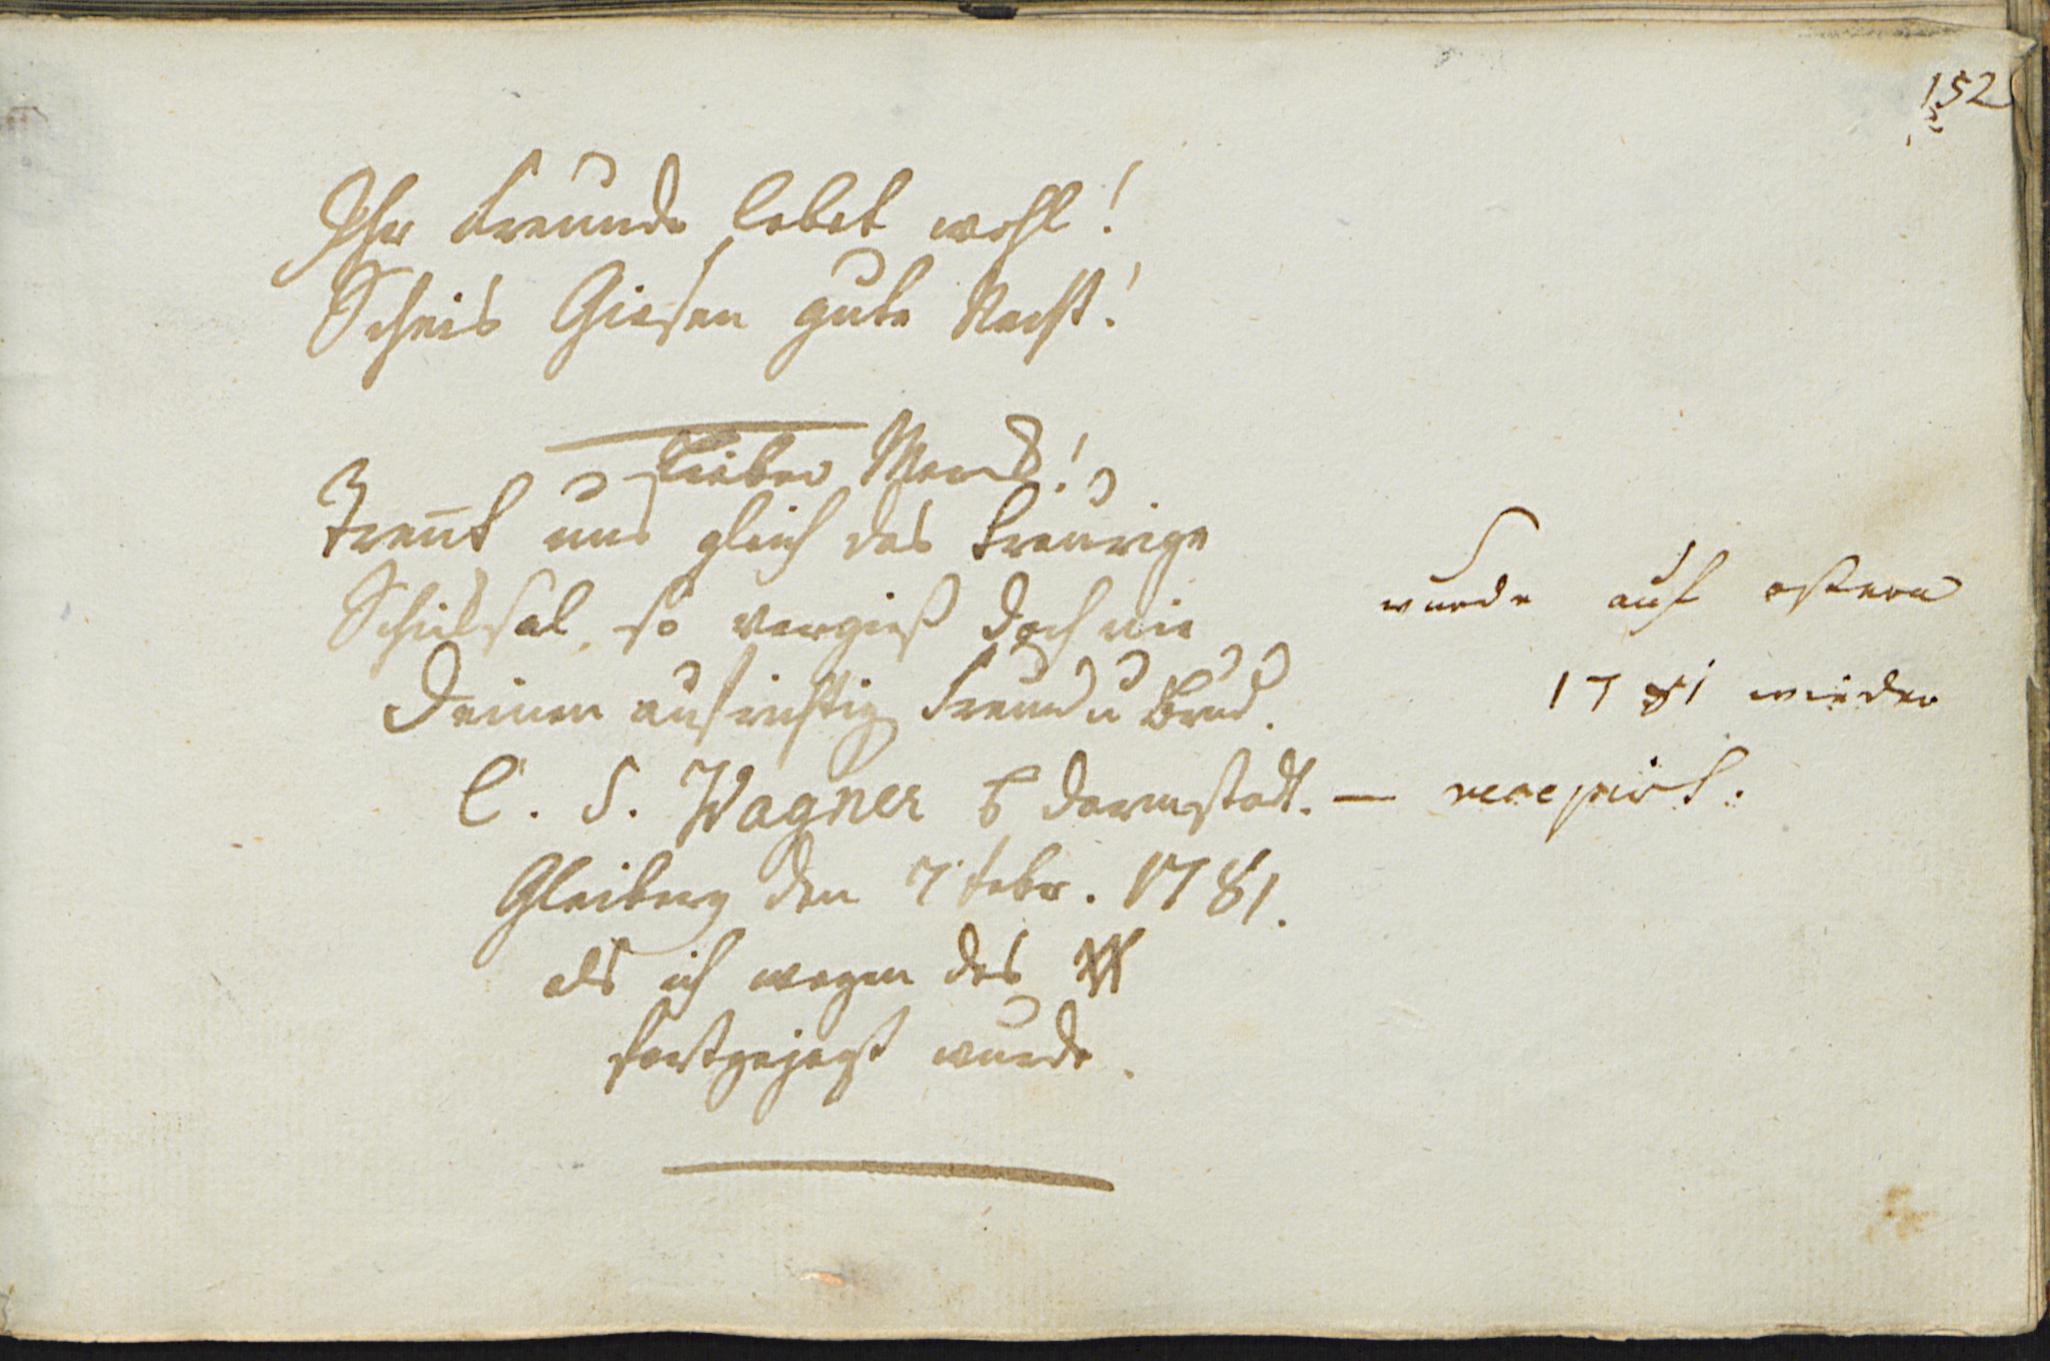 152
Ihr Freunde lebet wohl!
Scheis Giesen gute Nacht!
Lieber
Treñt uns gleich das traurige
Schiksal, so vergiß doch nie
Deinen aufrichtig Freund u Brud.
C. S. Wagner Darmstadt. —
Gleiberg den 7 Febr. 1781.
als ich wegen des
fortgejagt wurde.
wurde auf ostern
1781 wieder
recepirt.